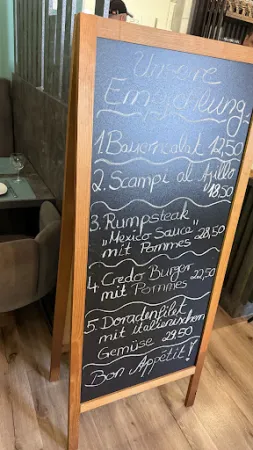 Unsere
Empfehlung
1. Bauernsalat 12,50
2. Scampi al Ajillo
18,50
3. Rumpsteak
„Mexico Sauce" 28,50
mit Pommes
4. Credo Burger 22,50
mit Pommes
5. Doradenfilet
mit italienischem
Gemüse 29,50
Bon Appétit!